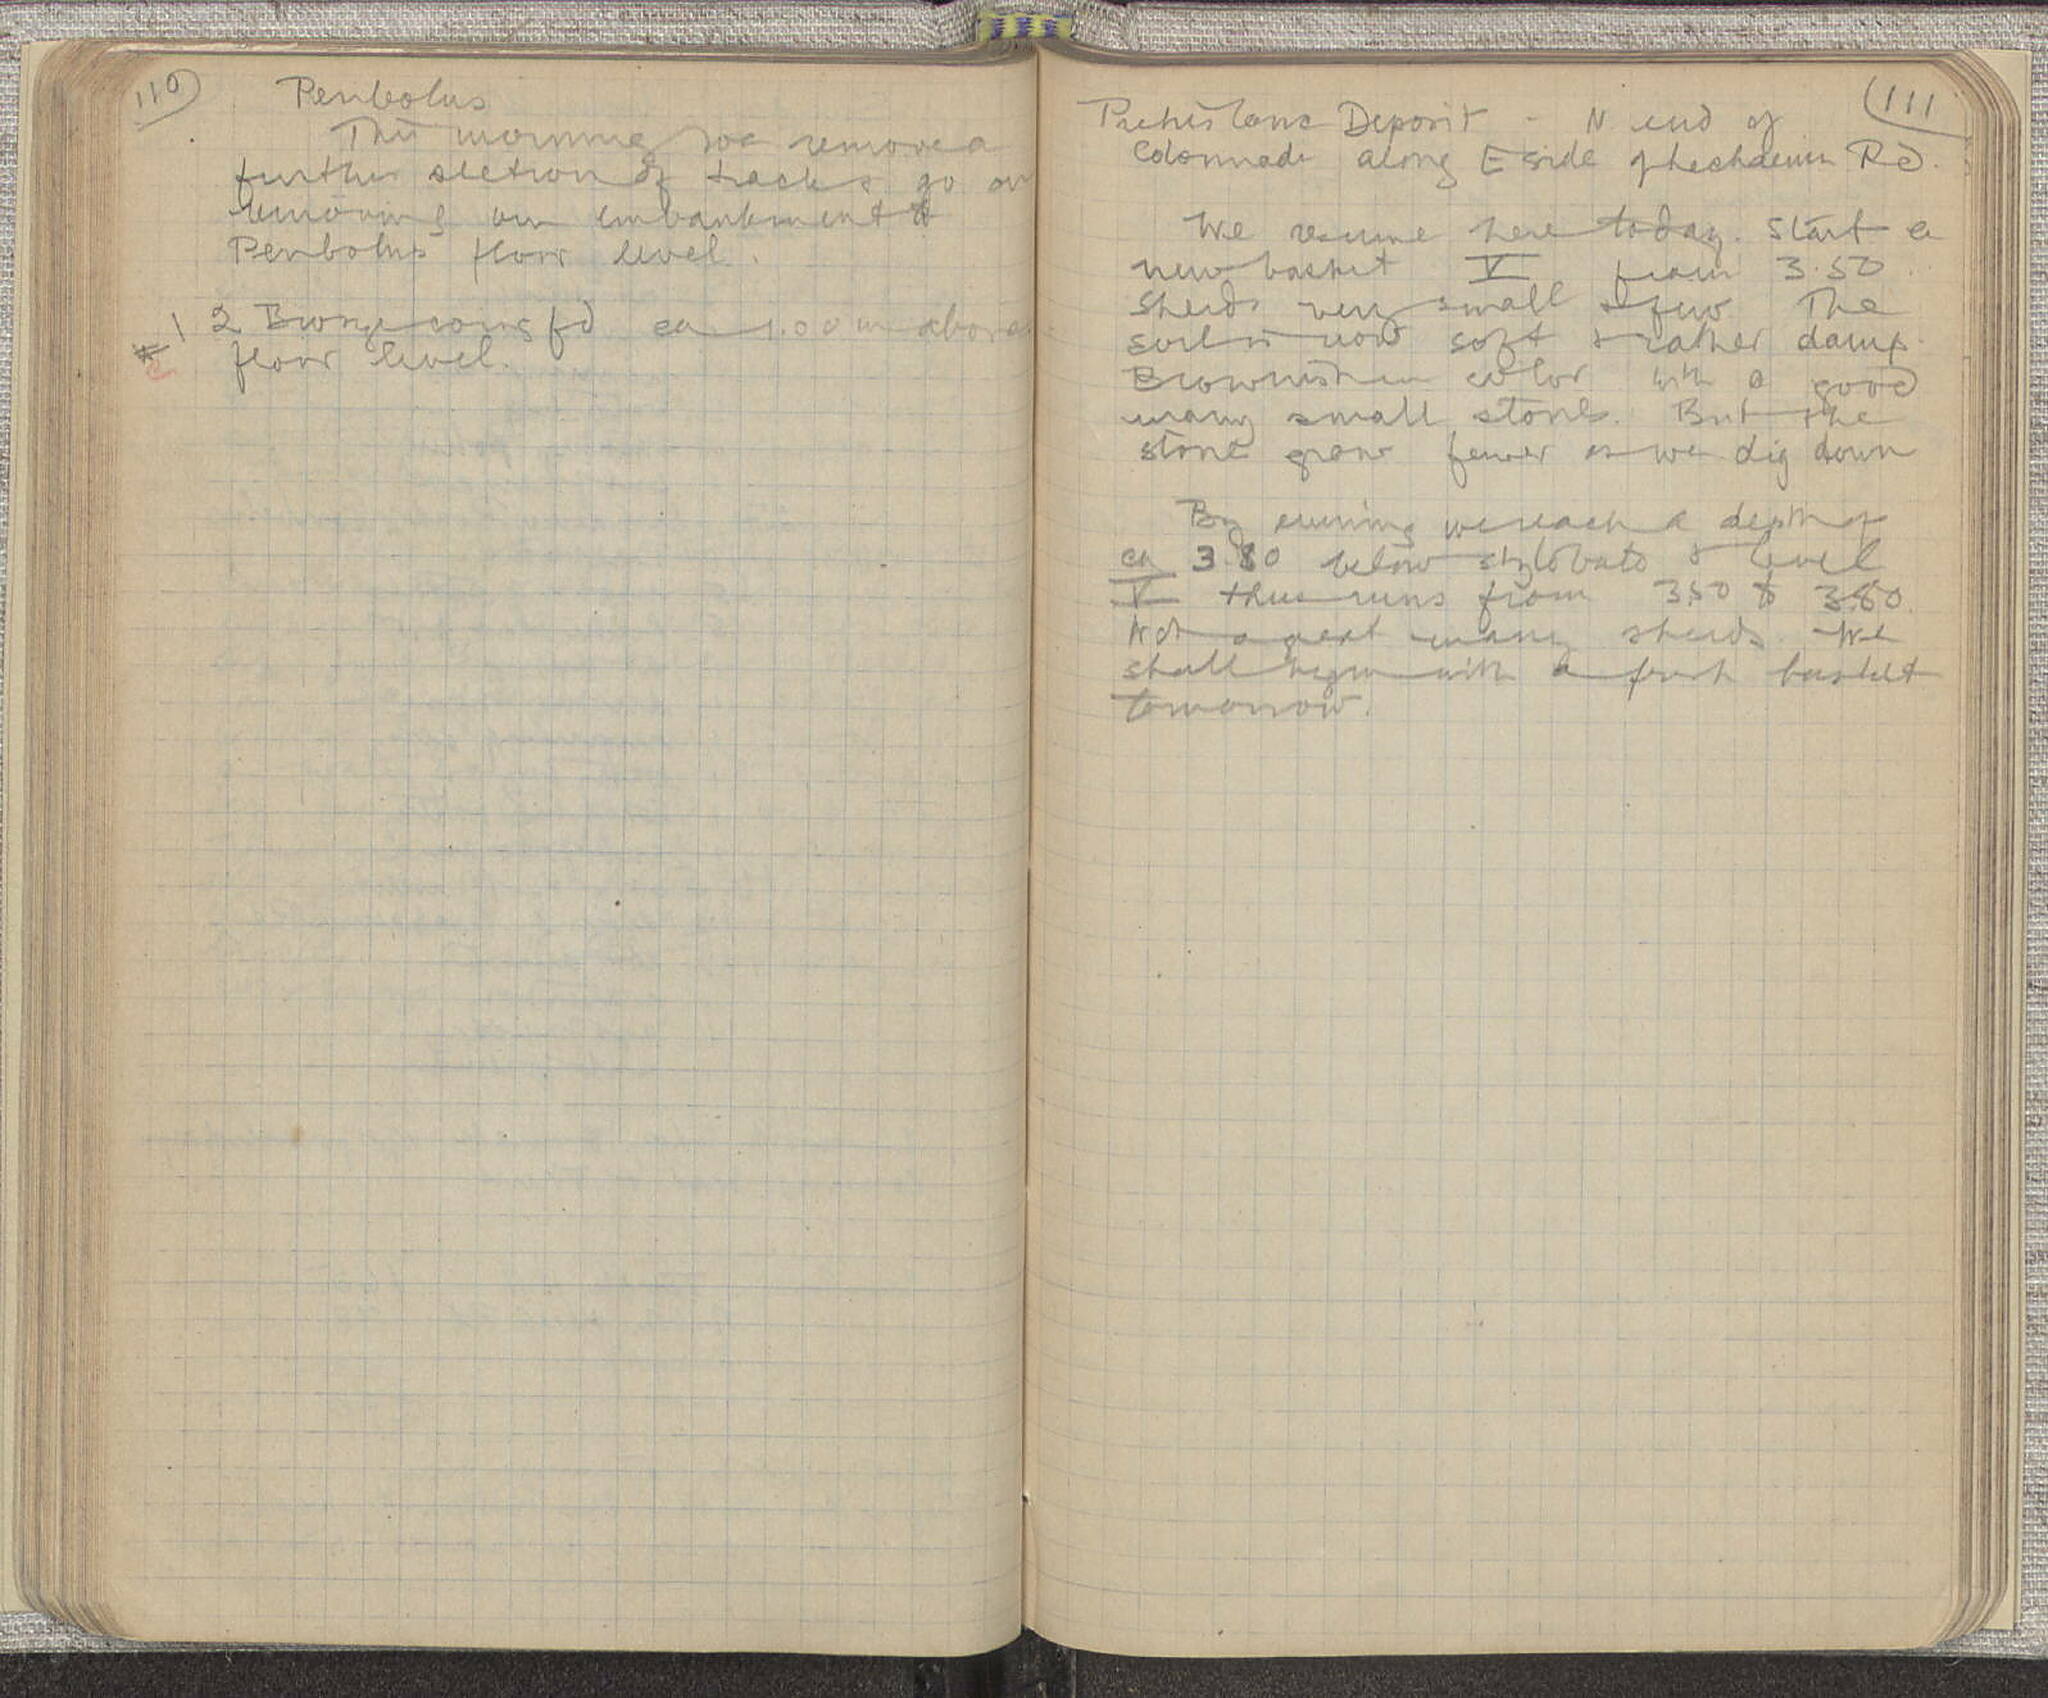 110
Peribolus
This morning we remove a
further section of tracks & go on
removing our embankment to
Peribolus floor level.
1 2 Bronze coins fd ca 1.00 m above
floor level.
111
Prehistoric Deposit - N end of
Colonnade along E side of Lechaeum Rd.
We resume here today. Start a
new basket V from 3.50
Sherds very small & few The
soil is now soft & rather damp.
Brownish in color with a good
many small stones. But the
stones grow fewer as we dig down
By evening we reach a depth of
ca 3.80 below stylobate & level
V thus runs from 3.50 to 3.80.
Not a great many sherds. We
shall begin with a fresh basket
tomorrow.